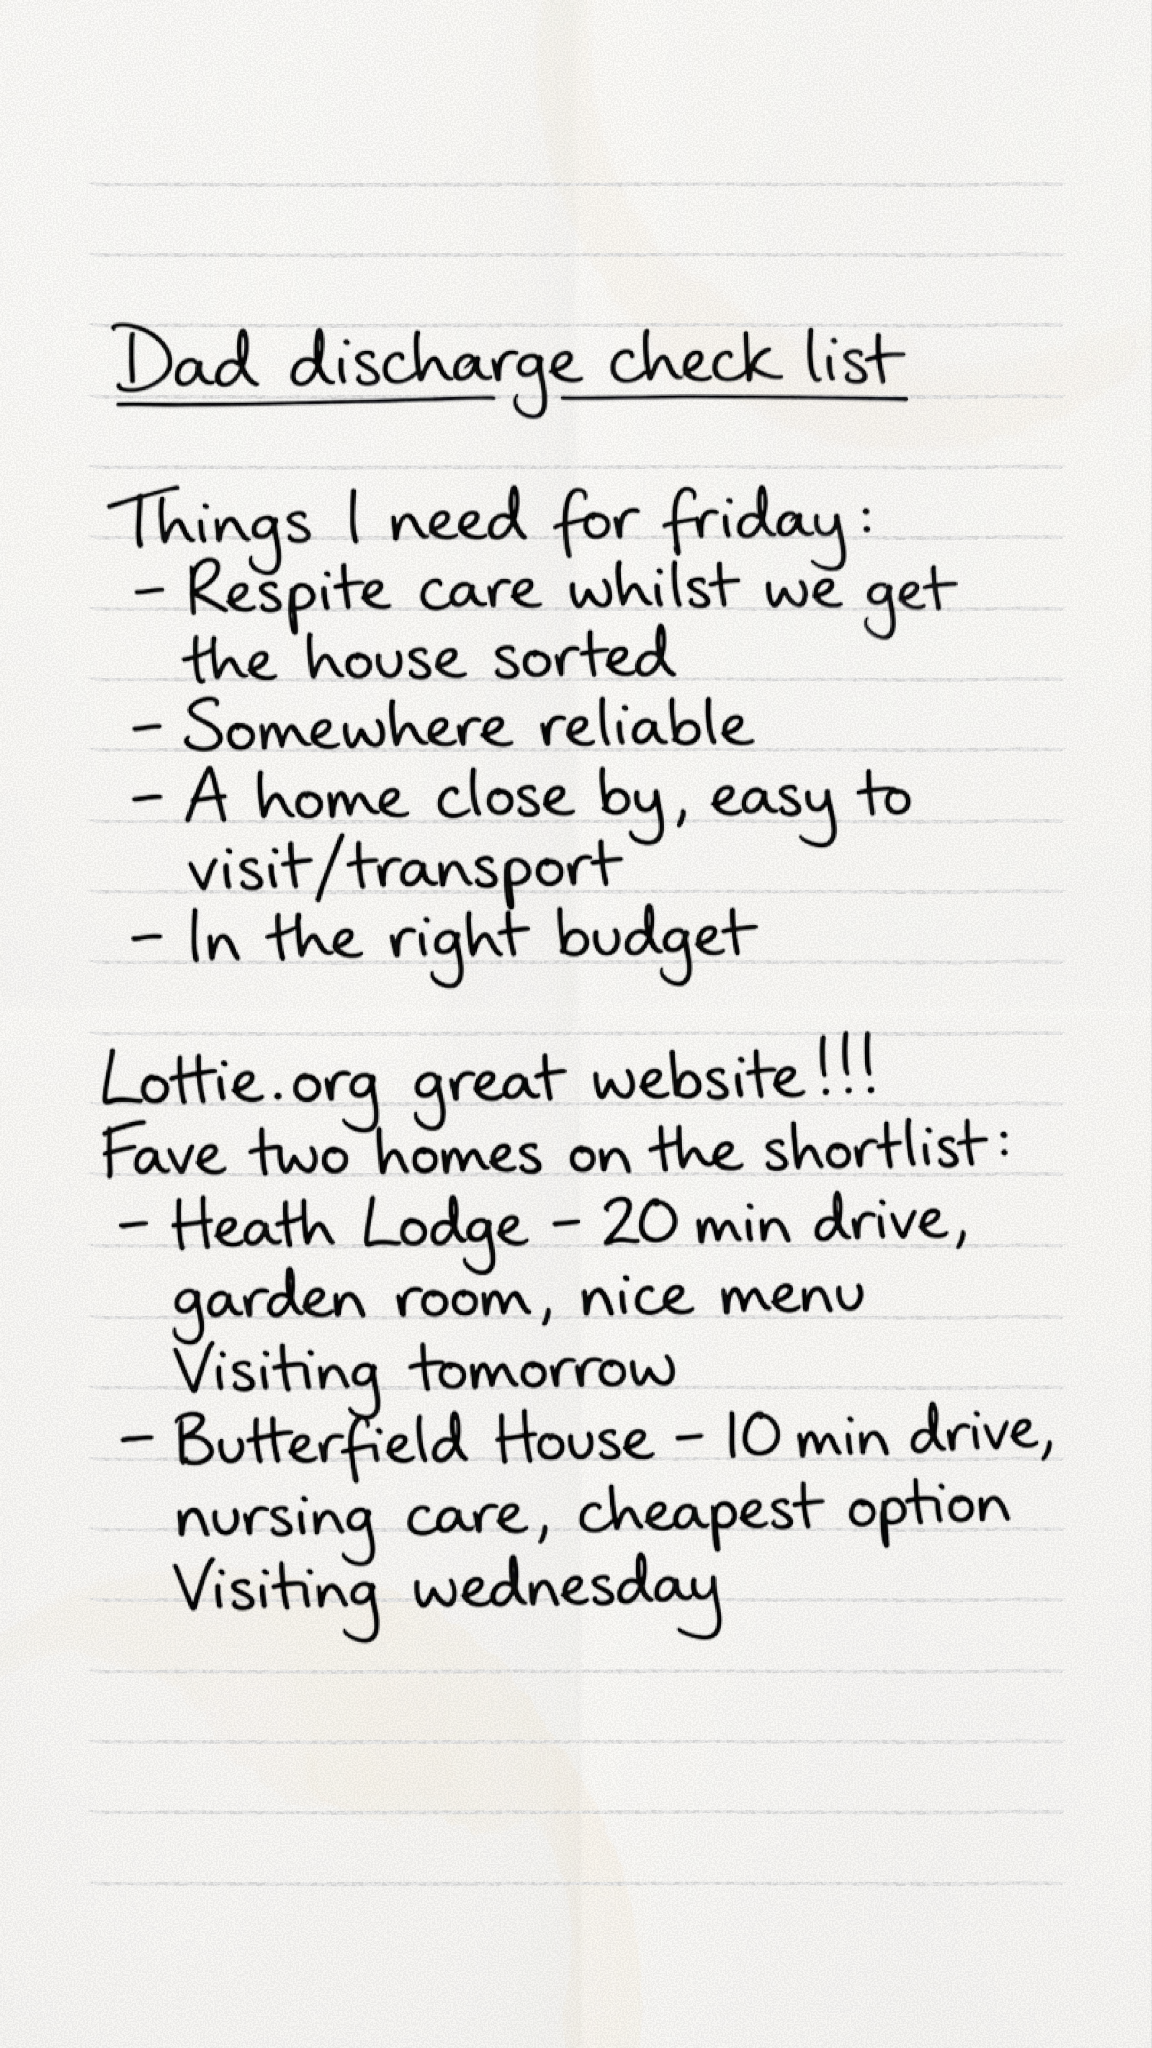 Dad discharge check list
Things I need for friday:
- Respite care whilst we get
the house sorted
- Somewhere reliable
- A home close by, easy to
visit/transport
- In the right budget
Lottie.org great website!!!
Fave two homes on the shortlist:
- Heath Lodge - 20 min drive,
garden room, nice menu
Visiting tomorrow
- Butterfield House - 10 min drive,
nursing care, cheapest option
Visiting wednesday